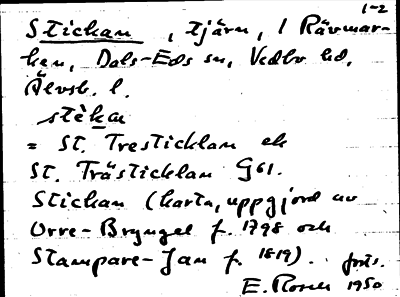 1-2
Stickan, tjärn, i Rävmar-
ken, Dals-Eds sn, Vedbo hd,
Älvsb. l.
stèkan
= St. Tresticklan ek
St. Trästicklan G61.
Stickan (karta, uppgjord av
Orre-Bryngel f. 1798 och
Stampare-Jan f. 1819). forts.
E. Rosen 1950